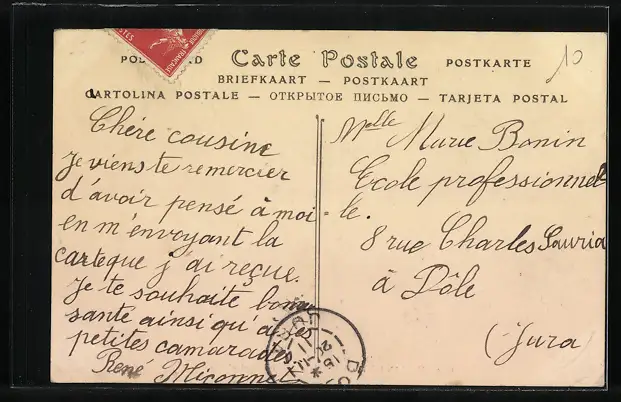 Carte Postale
POSTKARTE
BRIEFKAART — POSTKAART
CARTOLINA POSTALE — ОТКРЫТОЕ ПИСЬМО — TARJETA POSTAL
10
Chére cousine
Je viens te remercier
d'avoir pensé à moi
en m'envoyant la
carte que j'ai reçue.
Je te souhaite bonne
santé ainsi qu'à tes
petites camarades.
René Miconnet
Melle Marie Bonin
Ecole professionnel-
le.
8 rue Charles Sauria
à Dôle
(Jura)